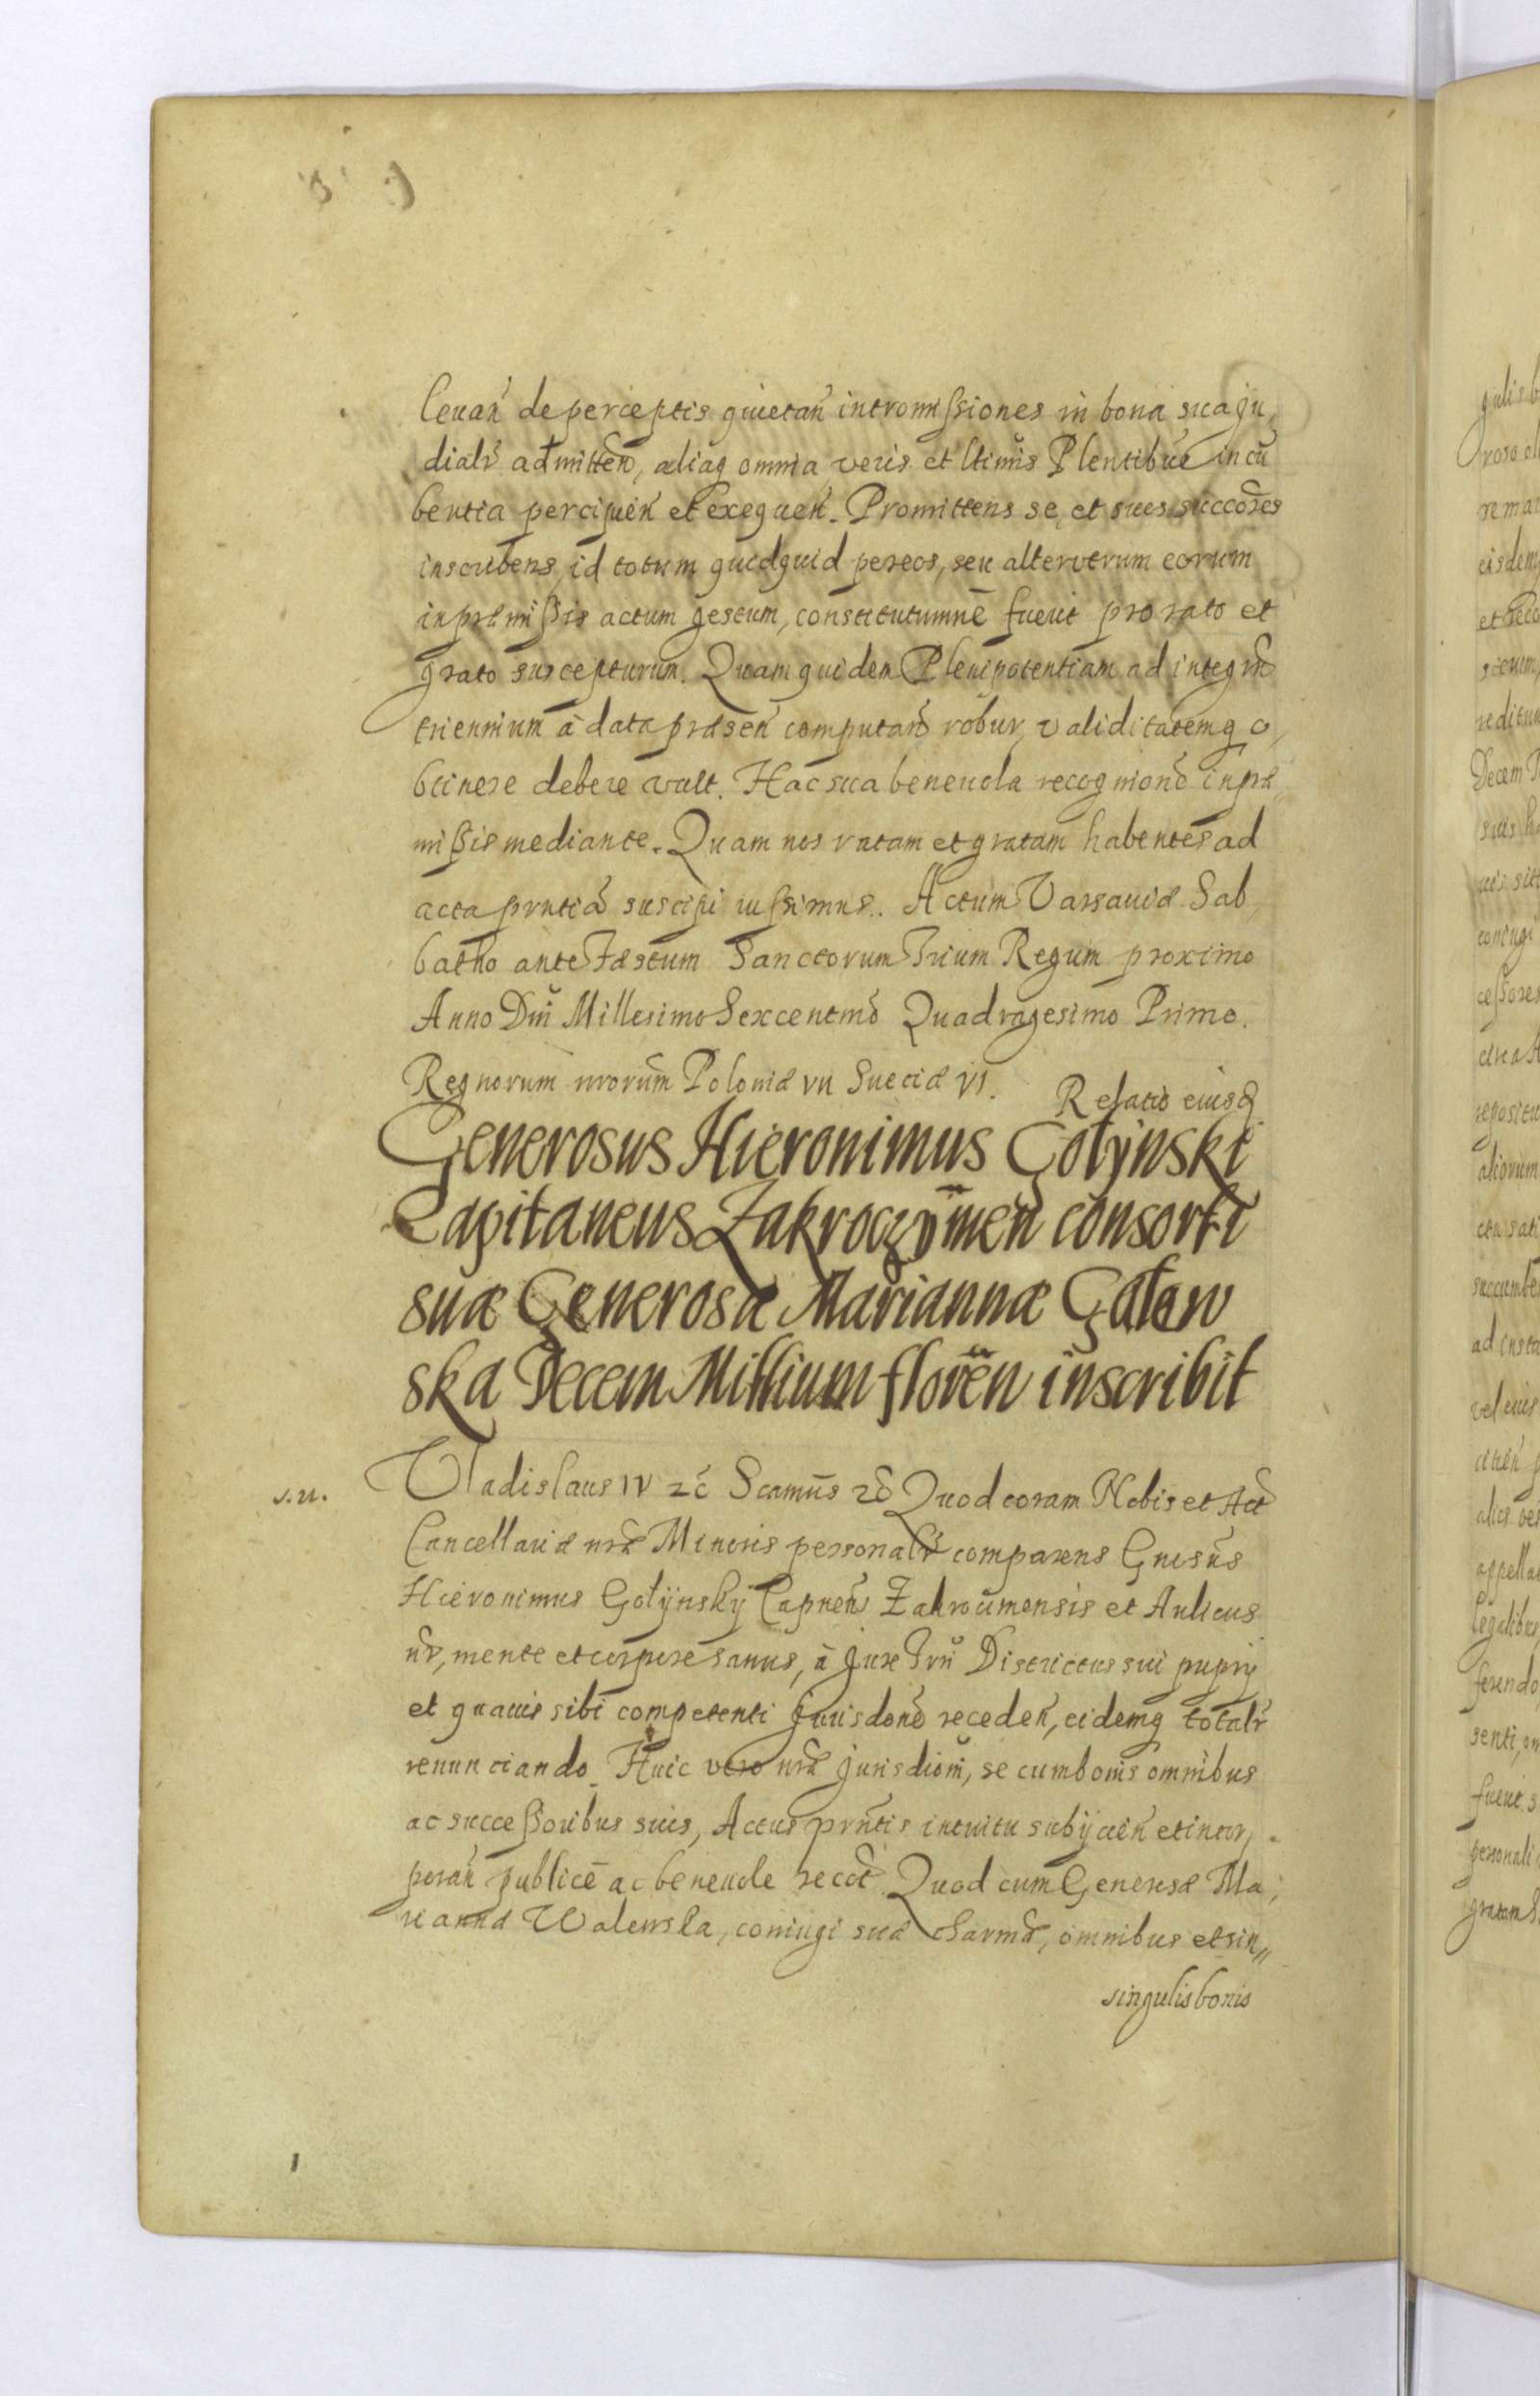 leuan̄ de perceptis quietan̄ intromissiones in bona sua ju,
dialr̄ admitten̄, aliaq omnia veris et ltimis Plentibus incū
bentia percipien̄ et exequen̄. Promittens se, et suos succōres
inscribens, id totum quidquid per eos, seu alterutrum eorum
in præmissis actum gestum, constitutumnē fuerit pro rato et
grato suscepturum. Quam quidem Plenipotentiam ad integrū
triennium à data præsen̄ computan̄ robur, validitatemq o,
btinere debere vult. Hac sua beneuola recognionē in præ
missis mediante. Quam nos ratam et gratam habentes ad
acta prntiā suscipi iussimus. Actum Varsauiæ Sab
batho ante Festum Sanctorum Trium Regum proximo
Anno Dnī Millesimo Sexcentmō Quadragesimo Primo.
Regnorum nrorūm Poloniæ VII Sueciæ VI. Relatio eiusd
Generosus Hieronimus Gołÿnski
Capitaneus Zakroczymen̄ consorti
suæ Generosæ Mariannæ Galew
ska Decem Millium floren̄ inscribit
s.n. Vladislaus IV zc̄ Scamūs zc̄ Quod coram Nobis et Act
Cancellariæ nræ Minoris personalr̄ comparens Gnrsūs
Hieronimus Gołÿnskÿ Capnen̄ Zakrocimensis et Aulicus
nr̄, mente et corpore sanus, à Jure Trrī Districtus sui puprij
et quauis sibi competenti Jurisdonē receden̄, eidemq totalr̄
renunciando. Huic vero nræ jurisdioni, se cum bonis omnibus
ac successoribus suis, Actus prn̄tis intuitu subijcien̄ et incor,
poran̄ publicē ac beneuole recot̄ Quod cum Generosæ Ma,
rianna Walewska, coniugi suæ charmæ, omnibus et sin,,
singulis bonis